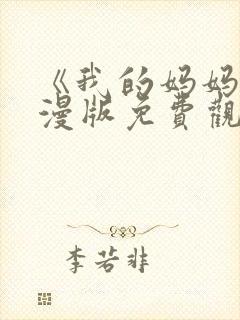 《我的妈妈
漫版免費觀
李若非